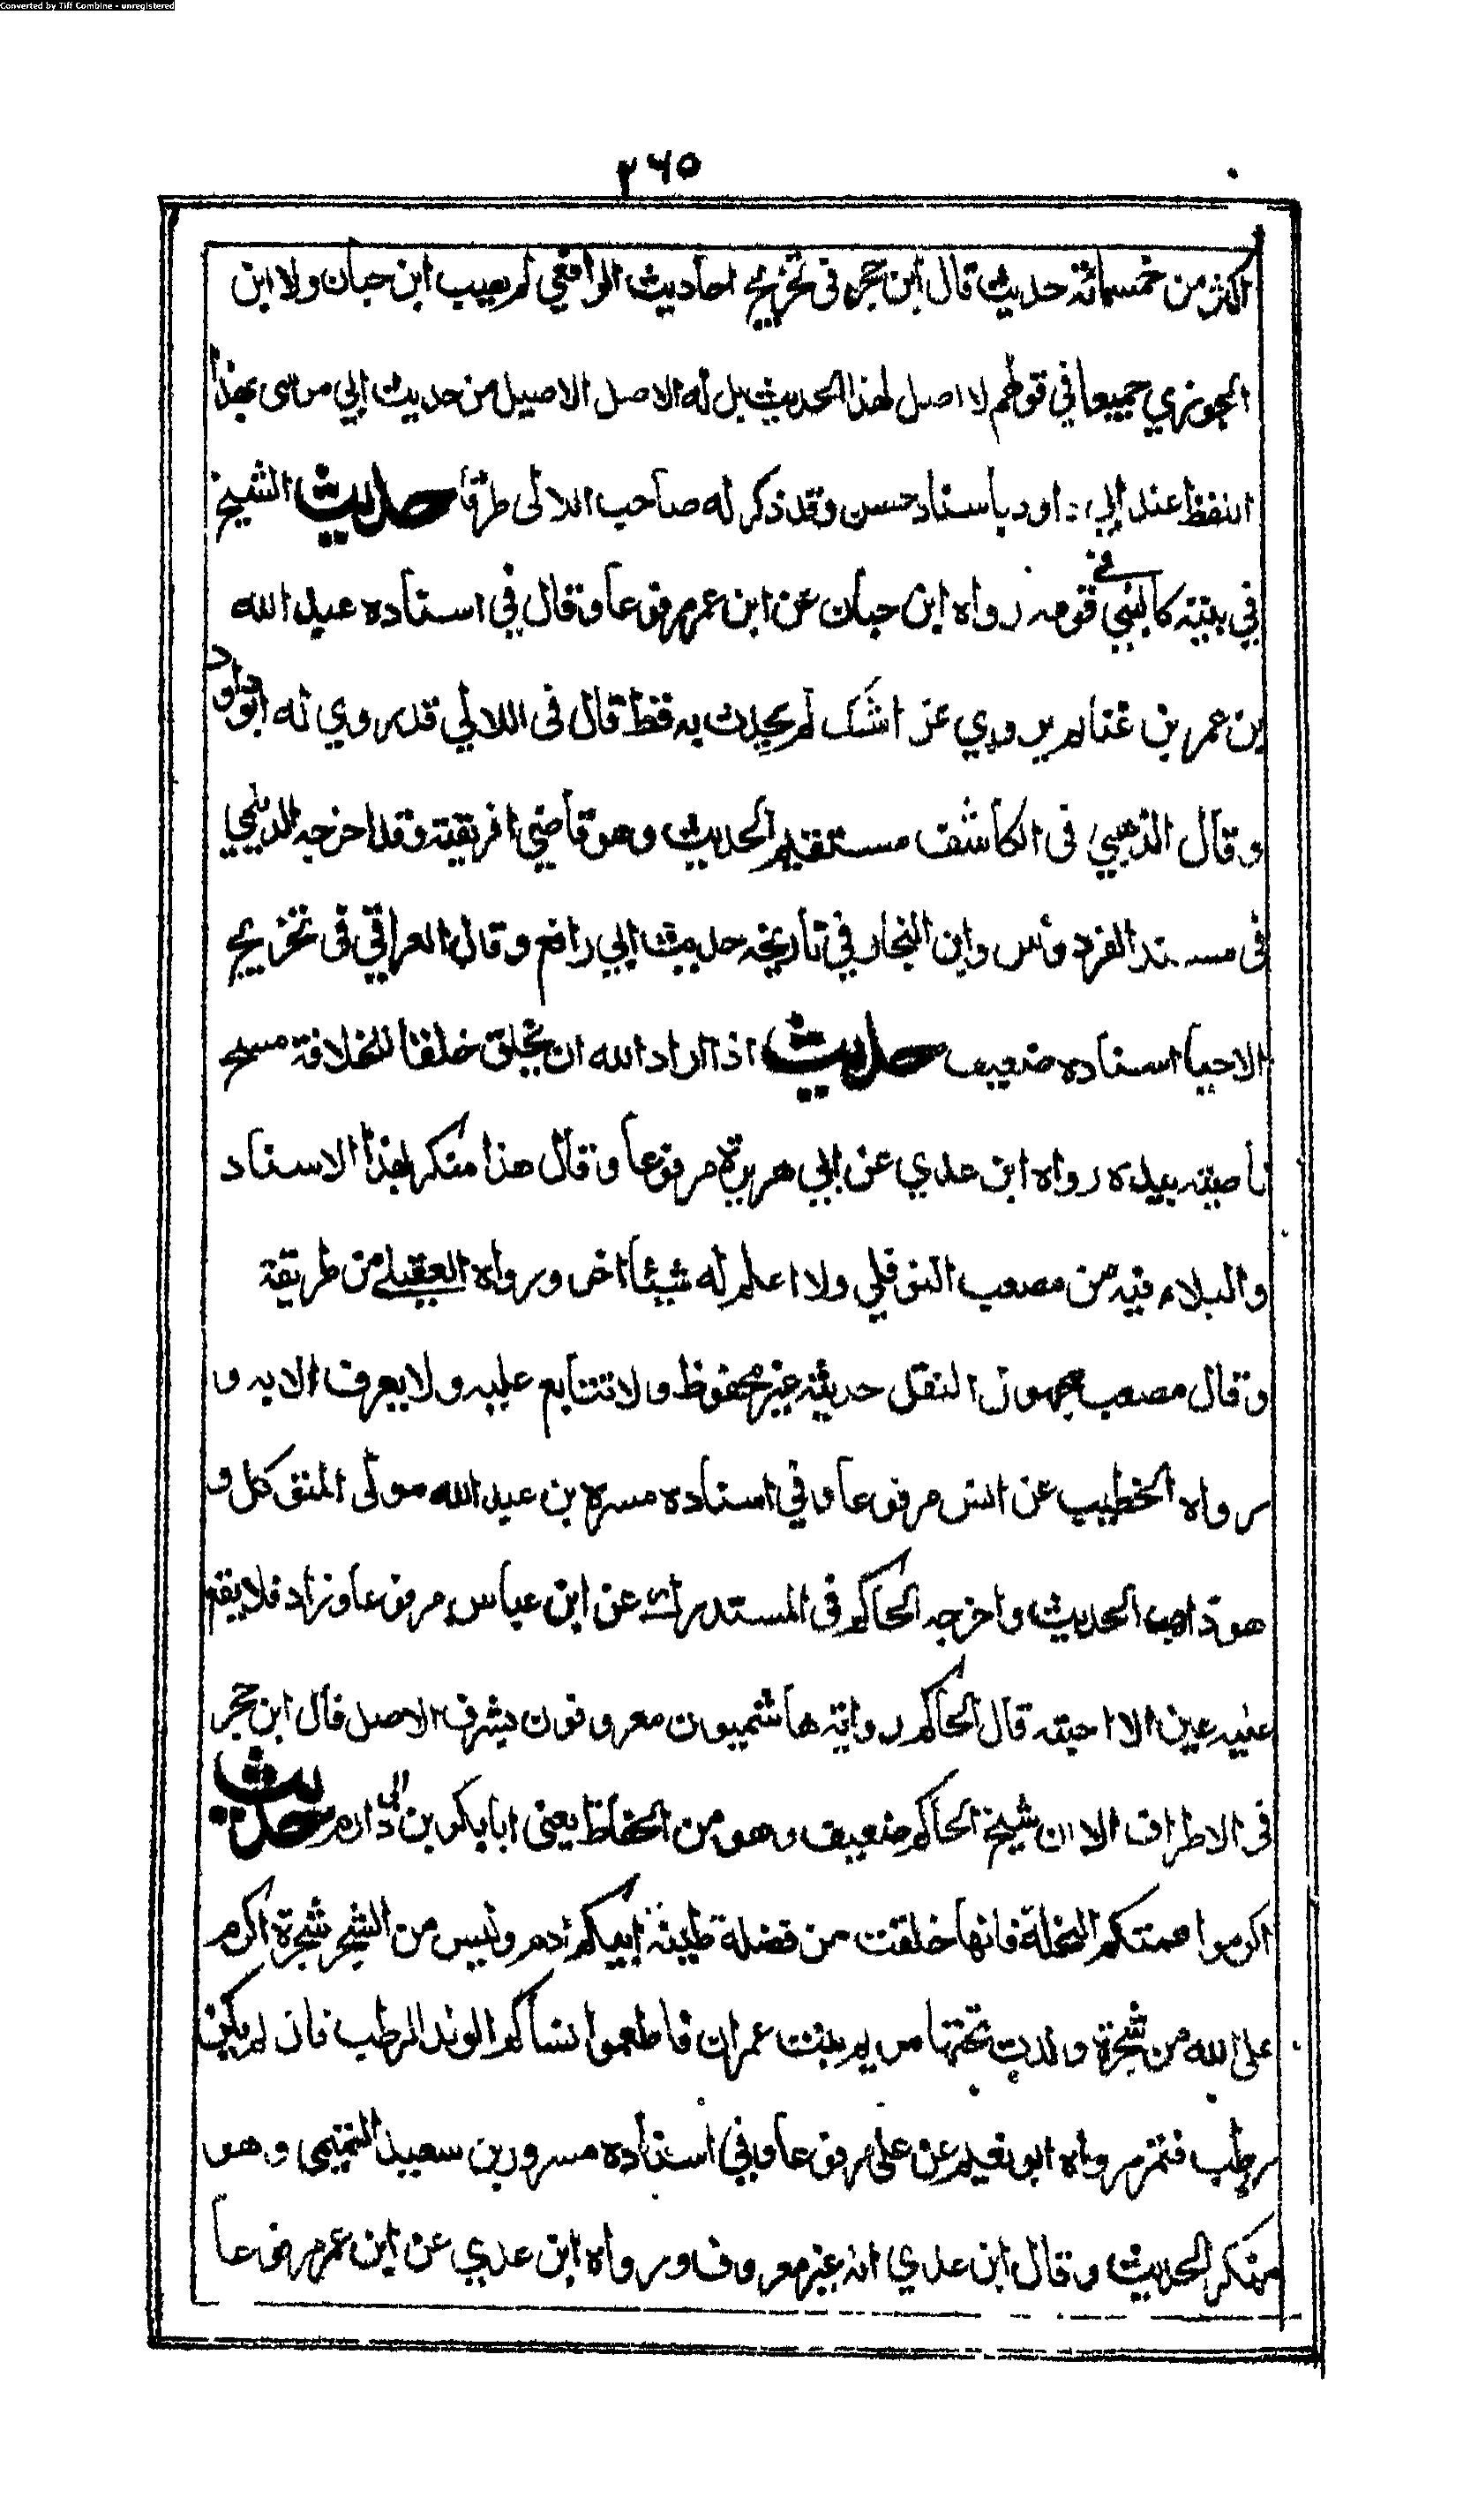 Converted by Tiff Combine - unregistered
٢٦٥
اكثر من خمسمائة حديث قال ابن حجر في تخريج احاديث الرافعي لم يصب ابن حبان ولا ابن
الجوزي جميعا في قولهم لا اصل لهذا الحديث بل له الاصل الاصيل من حديث ابي موسى بهذا
اللفظ عند ابي داود باسناد حسن وقد ذكر له صاحب اللالى طرقا حديث الشيخ
في بيته كالنبي في قومه رواه ابن حبان عن ابن عمر مرفوعا وقال في اسناده عبد الله
بن عمر بن غنائم يروي عن اشك لم يحدث به قط قال في اللالي قد روي له ابوداود
وقال الذهبي في الكاشف مستقيم الحديث وهو قاضي افريقية وقد اخرجه الديلمي
في مسند الفردوس وابن النجار في تاريخه حديث ابي رافع وقال العراقي في تخريج
الاحيا اسناده ضعيف حديث اذا اراد الله ان يخلق خلقا للخلافة مسح
ناصيته بيده رواه ابن عدي عن ابي هريرة مرفوعا وقال هذا منكر بهذا الاسناد
والبلاء فيه من مصعب النوفلي ولا اعلم له شيئا اخر ورواه العقيلي من طريقة
وقال مصعب مجهول النقل حديثه غير محفوظ ولا تتابع عليه ولا يعرف الا به و
رواه الخطيب عن انس مرفوعا وفي اسناده مسرة بن عبد الله مولى المتوكل و
هو ذاهب الحديث واخرجه الحاكم في المستدرك عن ابن عباس مرفوعا وزاد فلا يقع
عليه عين الا احبته قال الحاكم رواته هاشميون معروفون بشرف الاصل قال ابن حجر
في الاطراف الا ان شيخ الحاكم ضعيف وهو من الحفاظ يعني ابا بكر بن ابى دارم حديث
اكرموا عمتكم النخلة فانها خلقت من فضلة طينة ابيكم ادم وليس من الشجر شجرة اكرم
على الله من شجرة ولدت تحتها مريم بنت عمران فاطعموا نساكم الولد الرطب فان لم يكن
رطب فتمر رواه ابو نعيم عن على مرفوعا وفي اسناده مسرور بن سعيد التميمي وهو
منكر الحديث وقال ابن عدي انه غير معروف ورواه ابن عدي عن ابن عمر مرفوعا